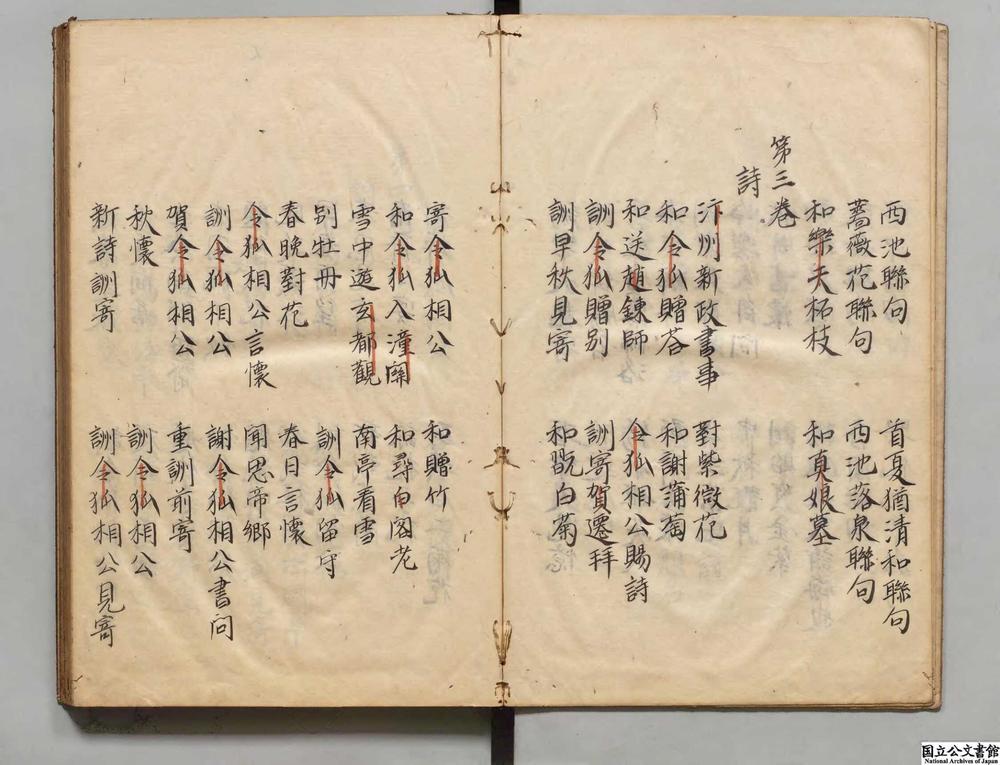 西池聯句　首夏猶清和聯句
薔薇花聯句　西池落泉聯句
和樂天柘枝　和真娘墓
第三卷
詩
汴州新政書事　對紫微花
和令狐贈荅　和謝蒲萄
和送趙鍊師　令狐相公賜詩
詶令狐贈別　詶寄賀遷拜
詶早秋見寄　和翫白菊
寄令狐相公　和贈竹
和令狐入潼關　和尋白閣老
雪中遊玄都觀　南亭看雪
別牡丹　詶令狐留守
春晚對花　春日言懷
令狐相公言懷　聞思帝鄉
詶令狐相公　謝令狐相公書問
賀令狐相公　重詶前寄
秋懷　詶令狐相公
新詩詶寄　詶令狐相公見寄
国立公文書館
National Archives of Japan